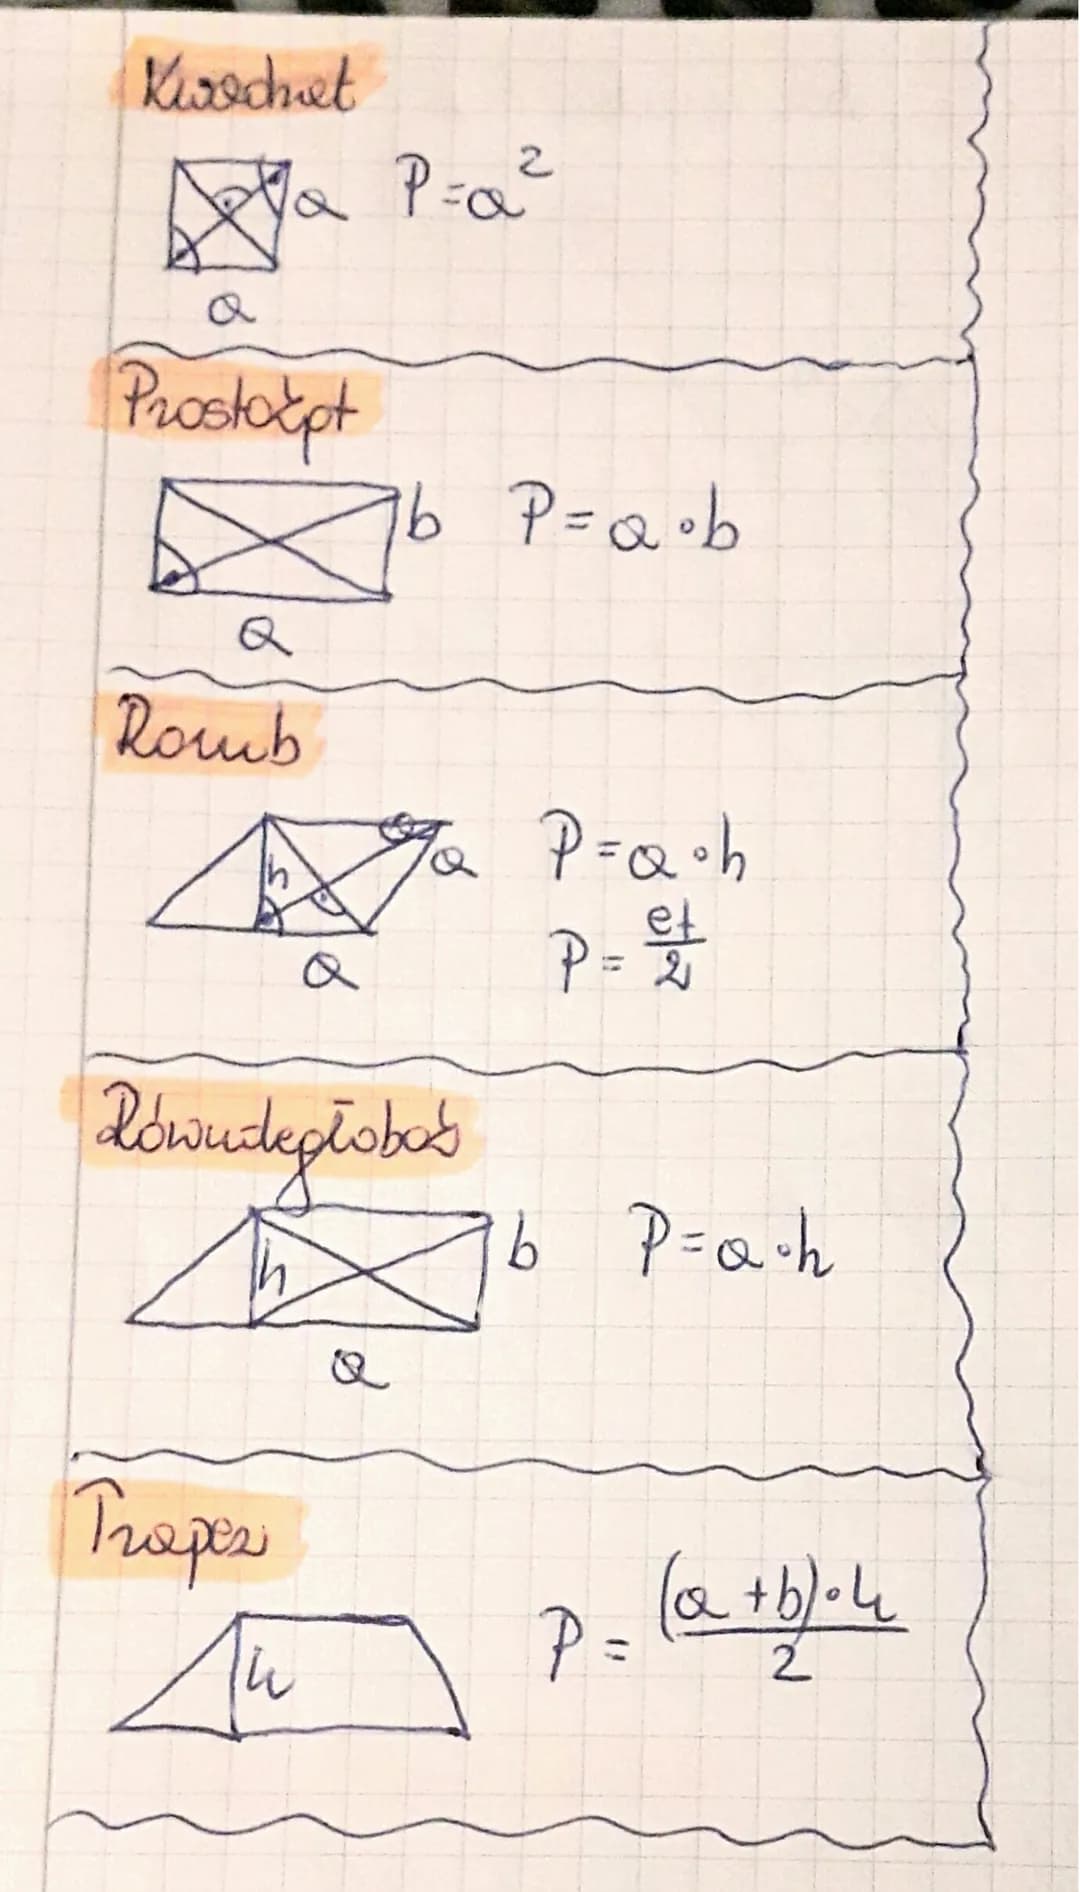 Kwadrat
a P=a²
a
Prostokąt
b P=a•b
a
Romb
h a P=a•h
P=ef/2
a
Równoległobok
h b P=a•h
a
Trapez
h P=(a+b)•h/2